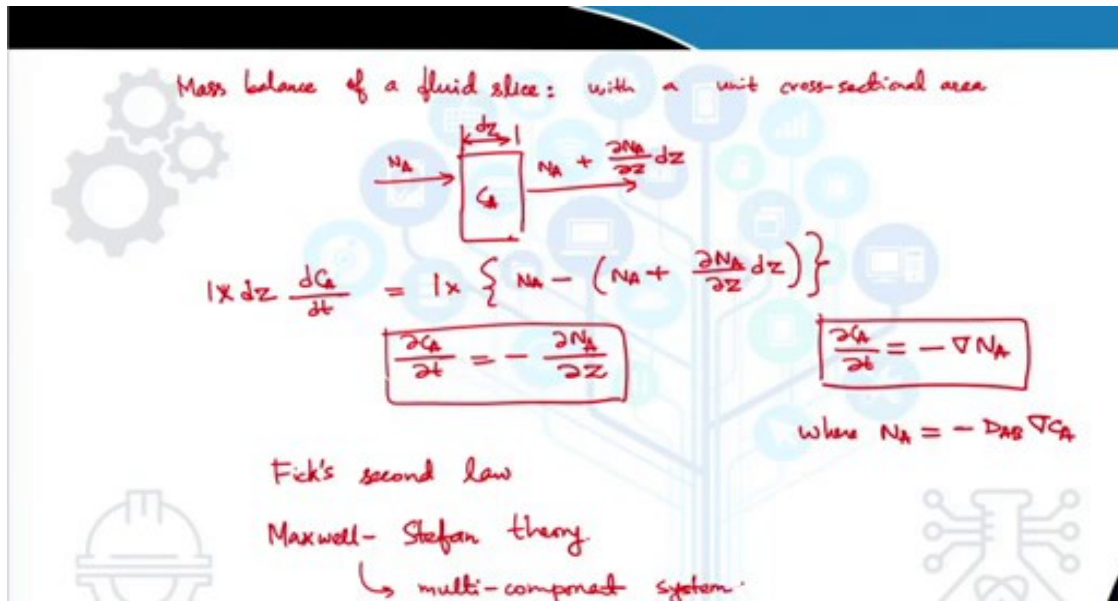 Mass balance of a fluid slice: with a unit cross-sectional area
dz
N_A
C_A
N_A + ∂N_A/∂z dz
1 × dz dC_A/dt = 1 × { N_A − ( N_A + ∂N_A/∂z dz ) }
∂C_A/∂t = − ∂N_A/∂z
∂C_A/∂t = − ∇ N_A
where N_A = − D_AB ∇C_A
Fick's second law
Maxwell - Stefan theory.
↳ multi-component system.